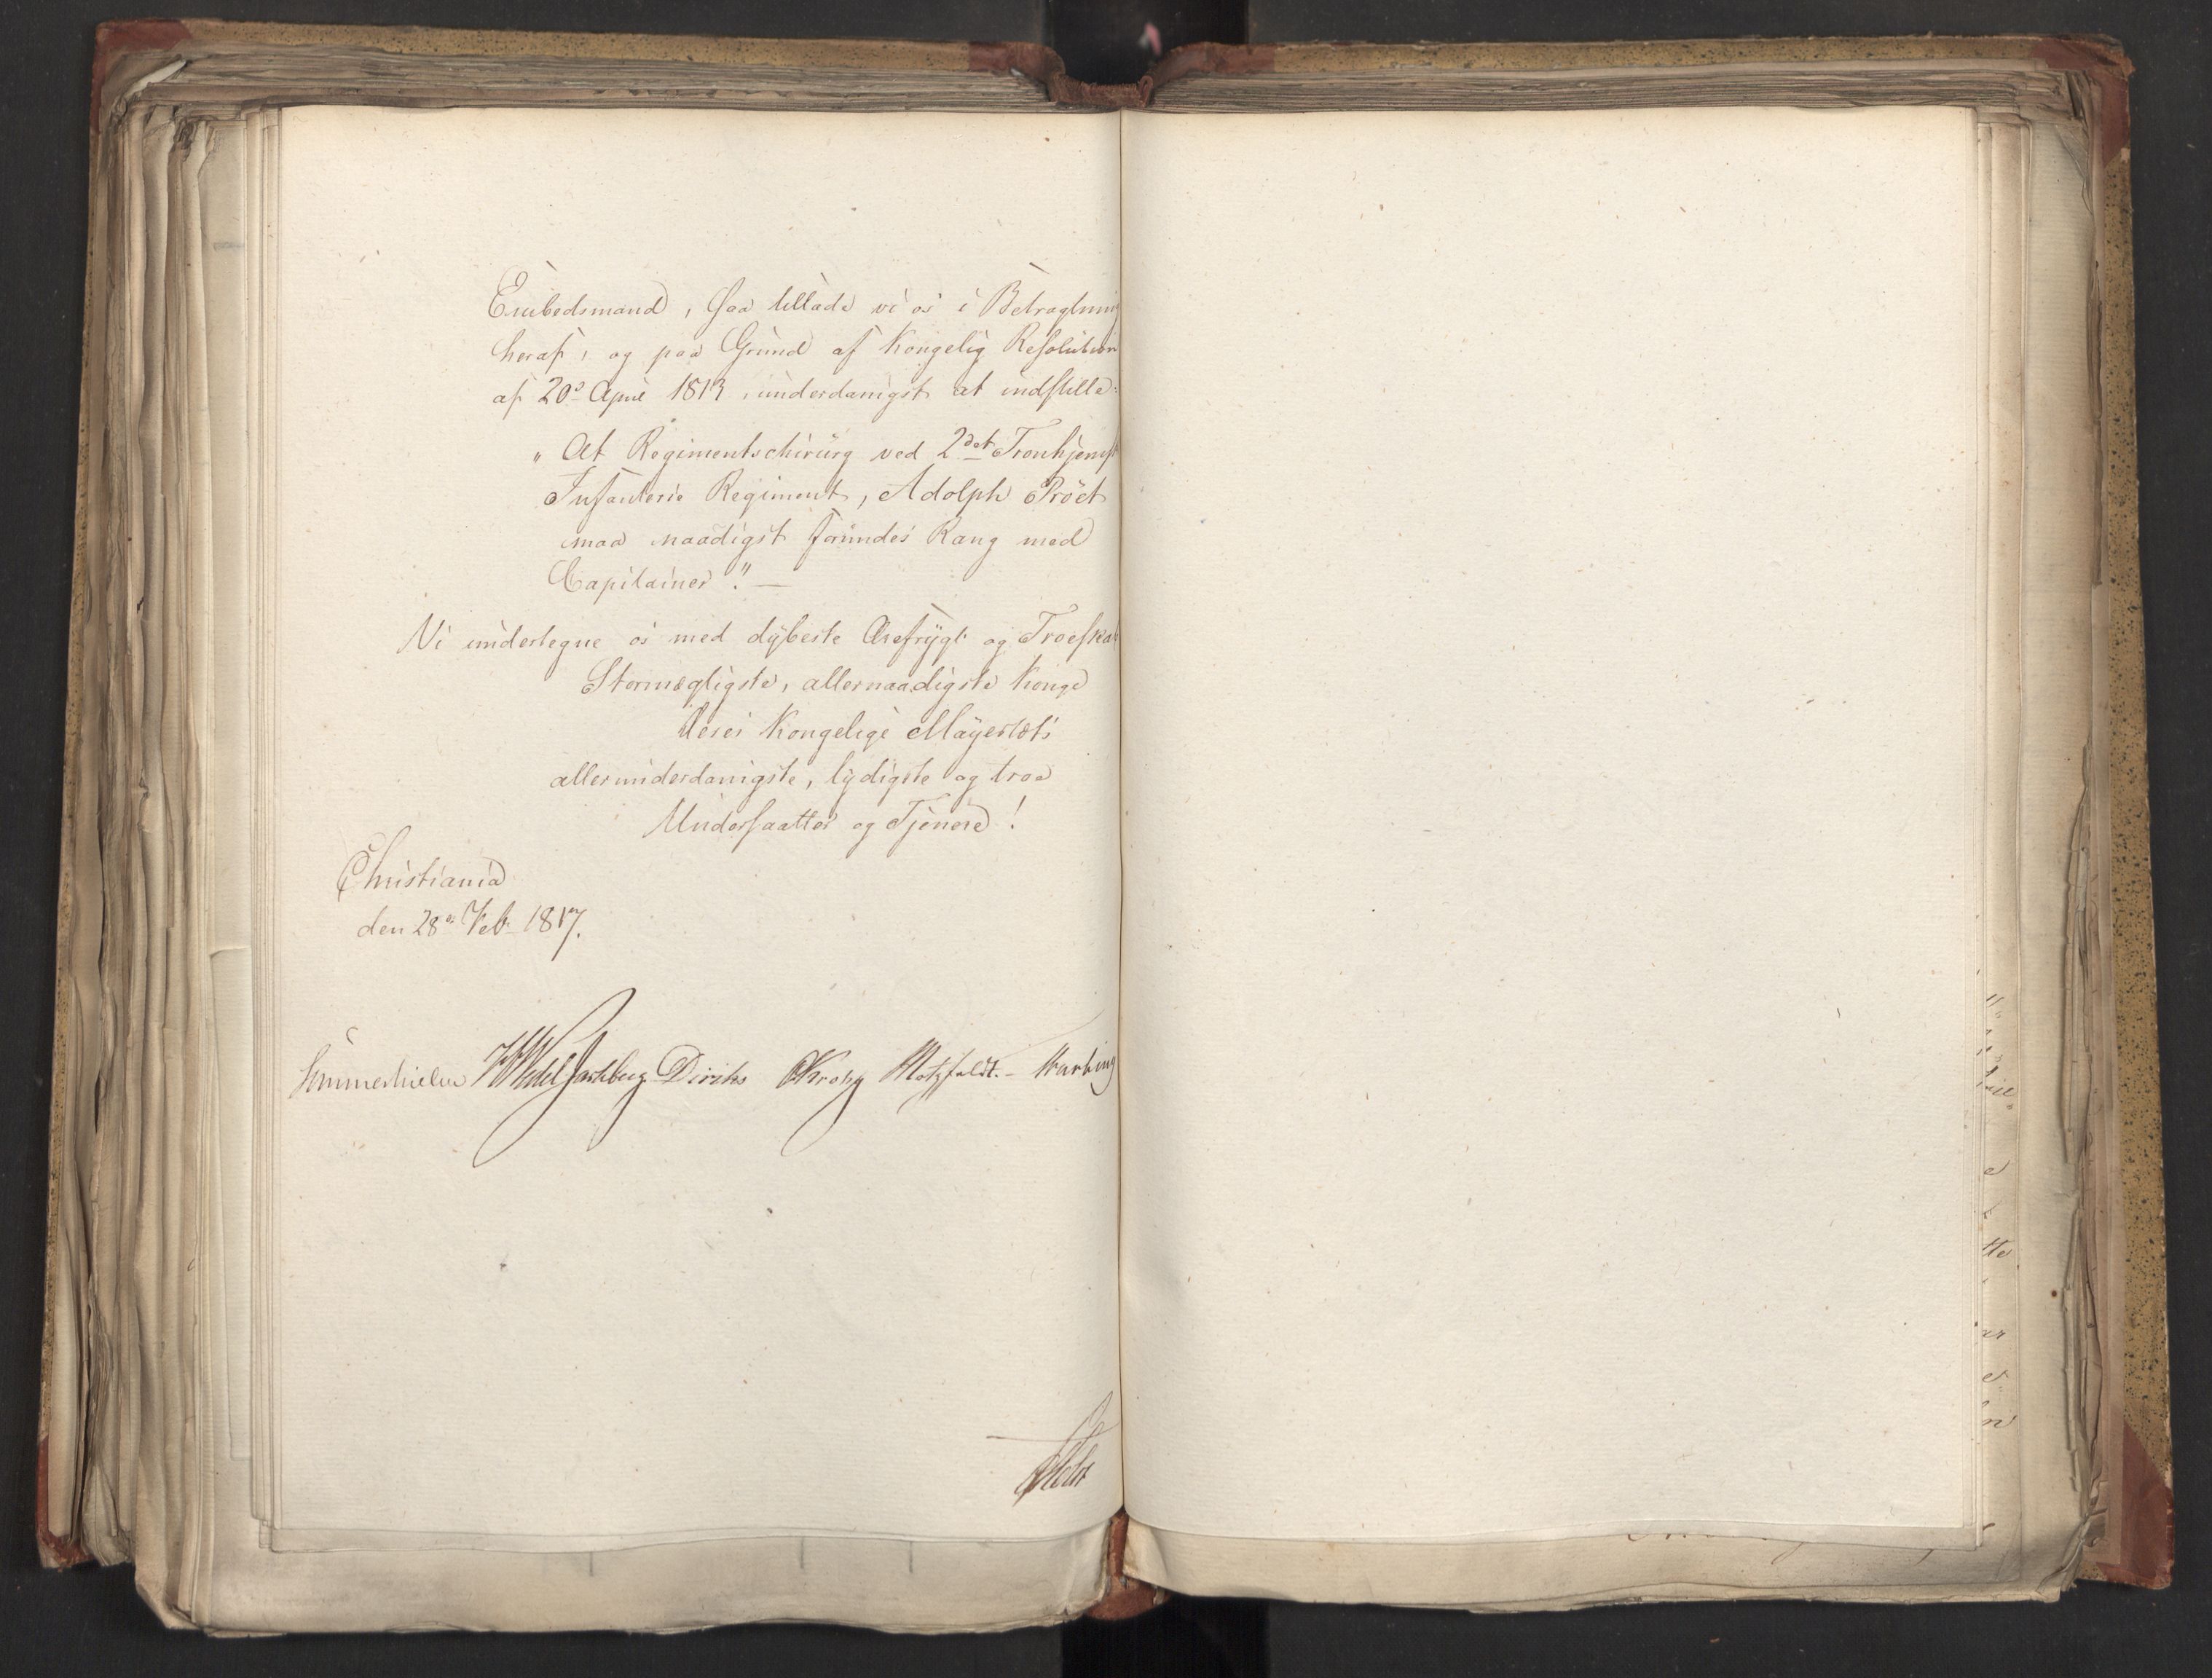 Embedsmand, saa tillade vi os i Betragtning
heraf, og paa Grund af Kongelig Resolution
af 20de April 1813, underdanigst at indstille:
„At Regimentschirurg ved 2det Tronhjemske
Infanterie Regiment, Adolph Pröet
maa naadigst forundes Rang med
Capitainer." —
Vi undertegne os med dybeste Ærefrygt og Troeskab
Stormægtigste, allernaadigste Konge
Deres Kongelige Mayestæts
allerunderdanigste, lydigste og troe
Undersaatter og Tjenere!
Christiania
den 28de Feb. 1817.
Sommerhielm HWedel Jarlsberg Diriks CKrohg Motzfeldt. Harbing
Holst